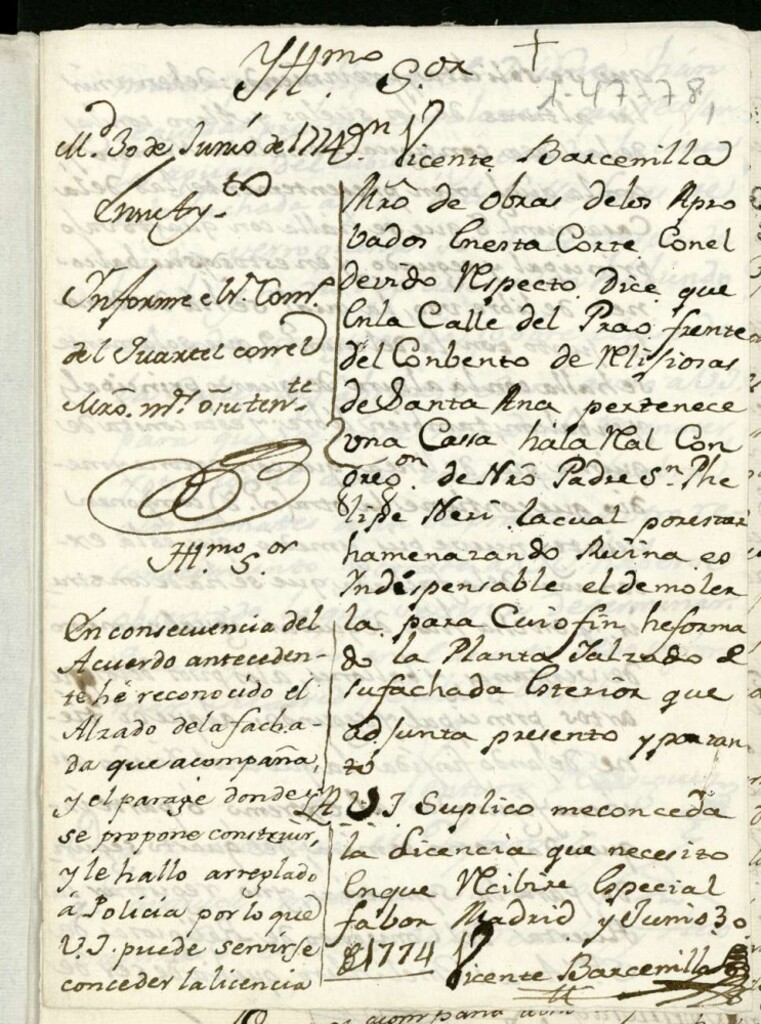 Yllmo Sor
1-47-78
Md 30 de Junio de 1774
Informe el Sr. Comro
del Quartel con el
Mro. mr.
Yllmo. Sor
En consecuencia del
Acuerdo anteceden-
te hé reconocido el
Alzado dela facha-
da que acompaña,
y el parage donde
se propone construir,
y le hallo arreglado
â Policia por lo que
V.I. puede servirse
conceder la licencia
Dn Vicente Barcenilla
Mrõ de obras delos Apro
vados Enesta Corte Conel
devido Respecto Dice que
Enla Calle del Prao frente
del Conbento de Relijiosas
de Santa Ana pertenece
vna Cassa hàla Ral Con
greg.on de Nrõ Padre Sn. Phe
lipe Neri lacual porestar
hamenazando Ruina es
Indispensable el demoler
la para Cuio fin heforma
do la Planta Ialzado de
sufachada Esterior que
adjunta presento y portan
to
A V.I Suplico meconceda
la Licencia que necesito
Enque Recibire Especial
fabor Madrid y Junio 30
de 1774
Vicente Barcenilla